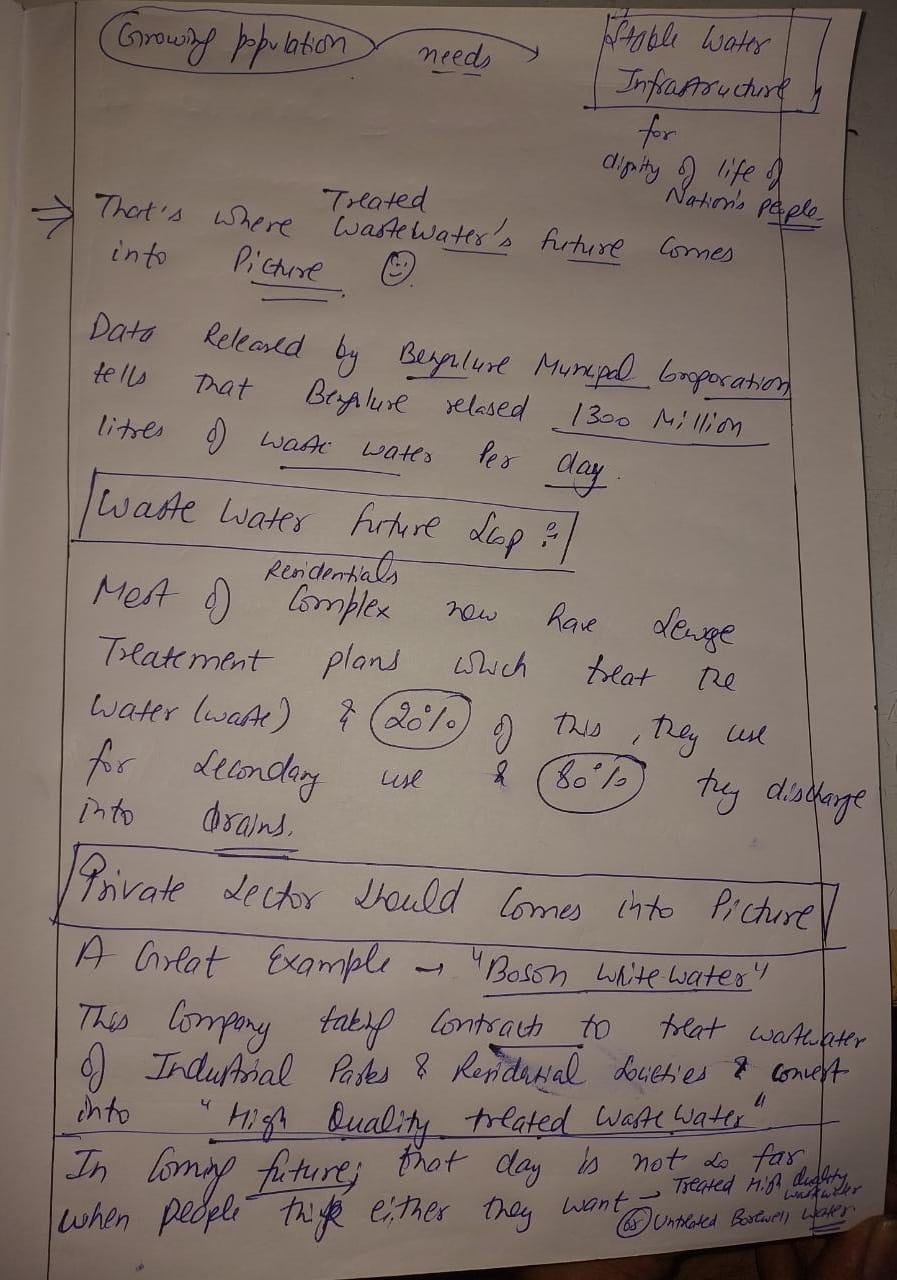 Growing population needs → Stable Water
Infrastructure
for
dignity of life of
Nation's people
⇒ That's where Treated Wastewater's future Comes
into Picture. ☺
Data Released by Bengulure Municpal Corporation
tells that Bengulure relased 1300 Million
litres of waste water Per day.
Waste Water future Scop :-
Most of Residentials Complex now have Sewge
Treatement plans which treat the
water (waste) & 20% of this, they use
for Secondary use & 80% they discharge
into drains.
Private Sector Should Comes into Picture
A Great Example → "Boson White water"
This Company taking Contracts to treat wastwater
of Industrial Parks & Residential Societies & convert
into "High Quality treated Waste Water"
In Coming future; that day is not So far
when people think either they want → Treated High Quality wastewater
or Untreated Borewell Water.